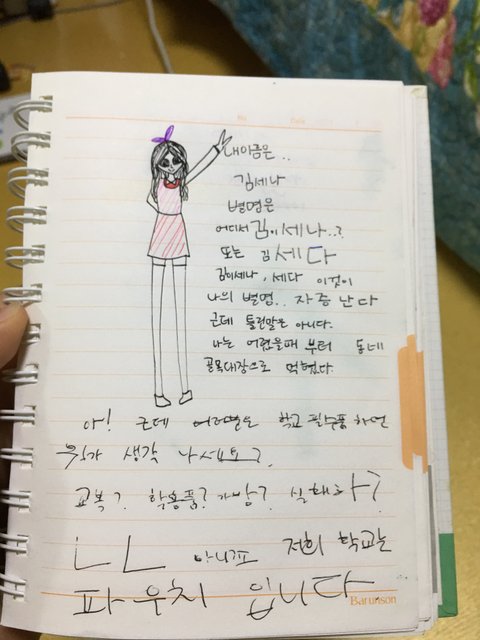 내이름은..
김세나
별명은
어디서 김이세나..?
또는 김세다
김이세나, 세다 이것이
나의 별명.. 자증난다
근데 틀린말은 아니다.
나는 어렸을때부터 동네
골목대장으로 먹혔다
아! 근데 여러분은 학교 필수품 하면
뭐가 생각 나세요?
교복? 학용품? 가방? 실내화?
ㄴㄴ 아니죠 저희 학교는
파우치 입니다
Barunson